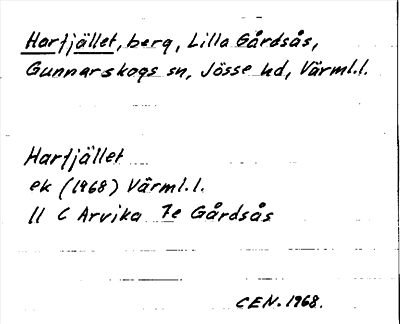 Harfjället, berg, Lilla Gårdsås,
Gunnarskogs sn, Jösse hd, Värml.l.
Harfjället
ek (1968) Värml.l.
11 C Arvika 7e Gårdsås
CEN. 1968.